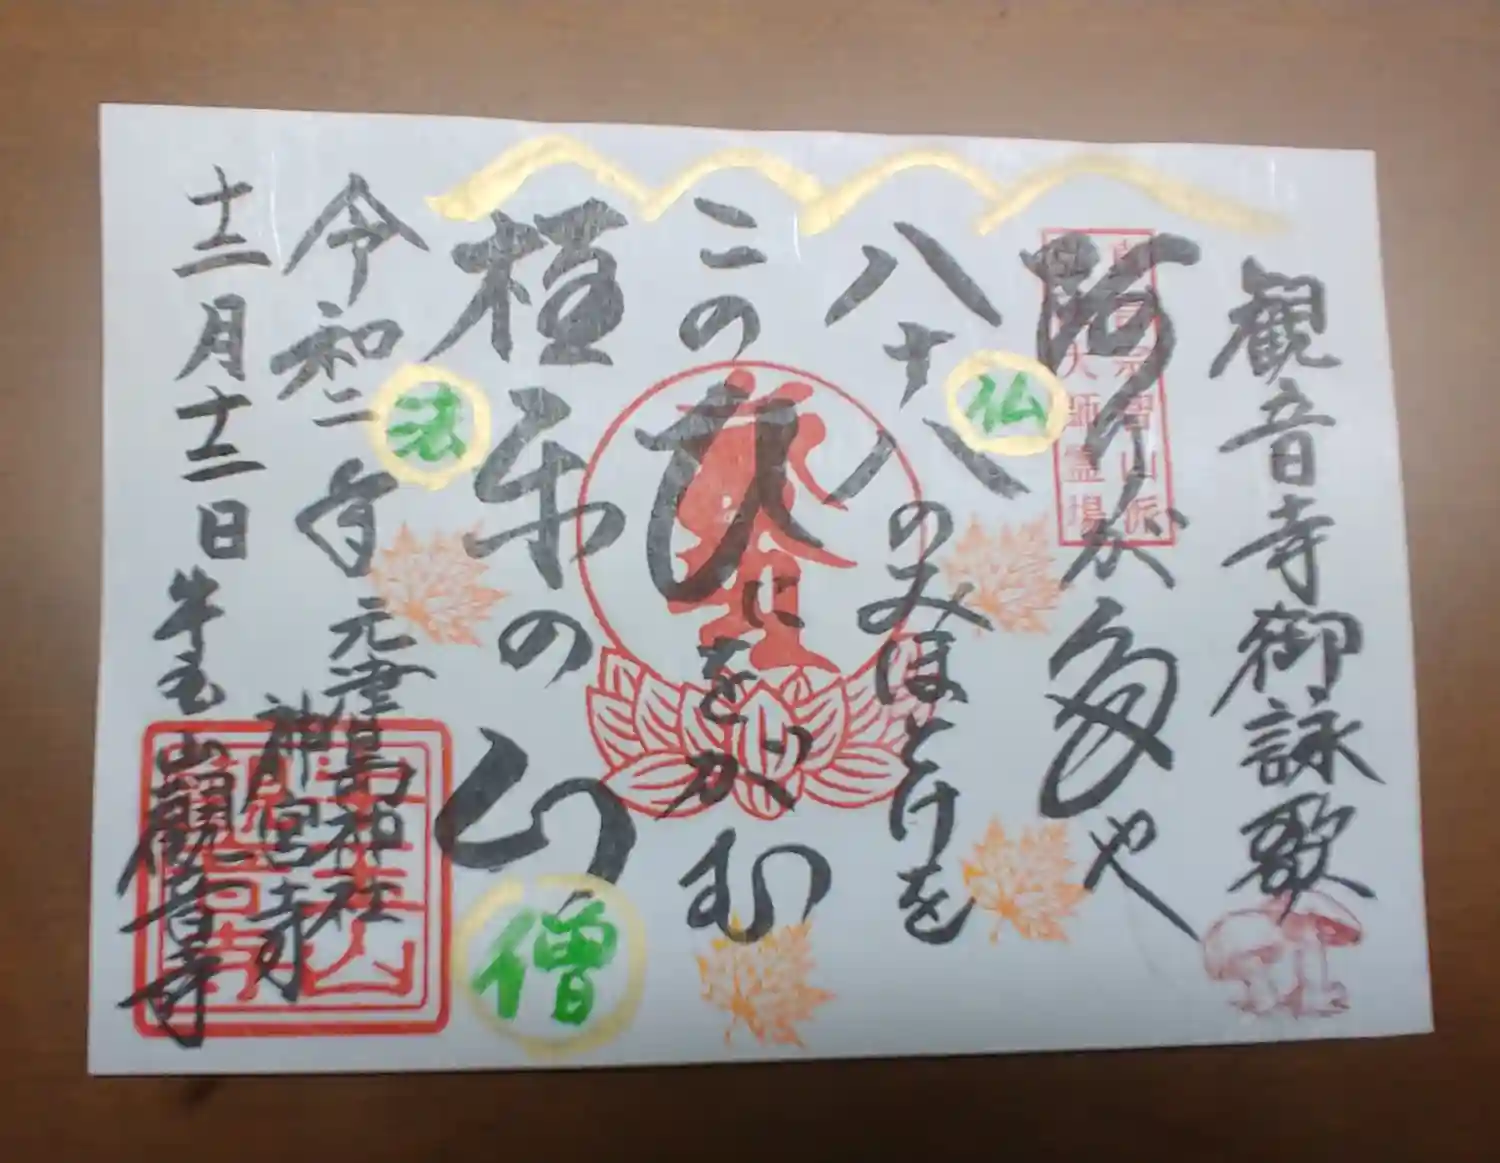 観音寺御詠歌
阿りが多や
八十八のみほとけを
二の
にをがむ
極楽の山
令和二年
元
島神社
神宮寺
十二月十二日
牛玉山観音寺
仏
法
僧
真言宗智山派
弘法大師霊場
牛玉山
観音寺